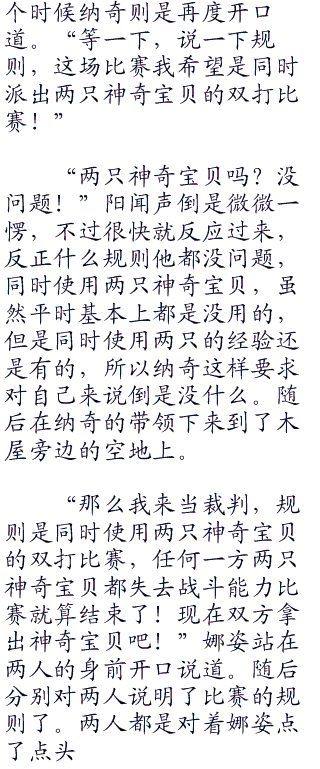 个时候纳奇则是再度开口
道。“等一下，说一下规
则，这场比赛我希望是同时
派出两只神奇宝贝的双打比
赛！”
“两只神奇宝贝吗？没
问题！”阳闻声倒是微微一
愣，不过很快就反应过来，
反正什么规则他都没问题，
同时使用两只神奇宝贝，虽
然平时基本上都是没用的，
但是同时使用两只的经验还
是有的，所以纳奇这样要求
对自己来说倒是没什么。随
后在纳奇的带领下来到了木
屋旁边的空地上。
“那么我来当裁判，规
则是同时使用两只神奇宝贝
的双打比赛，任何一方两只
神奇宝贝都失去战斗能力比
赛就算结束了！现在双方拿
出神奇宝贝吧！”娜姿站在
两人的身前开口说道。随后
分别对两人说明了比赛的规
则了。两人都是对着娜姿点
了点头